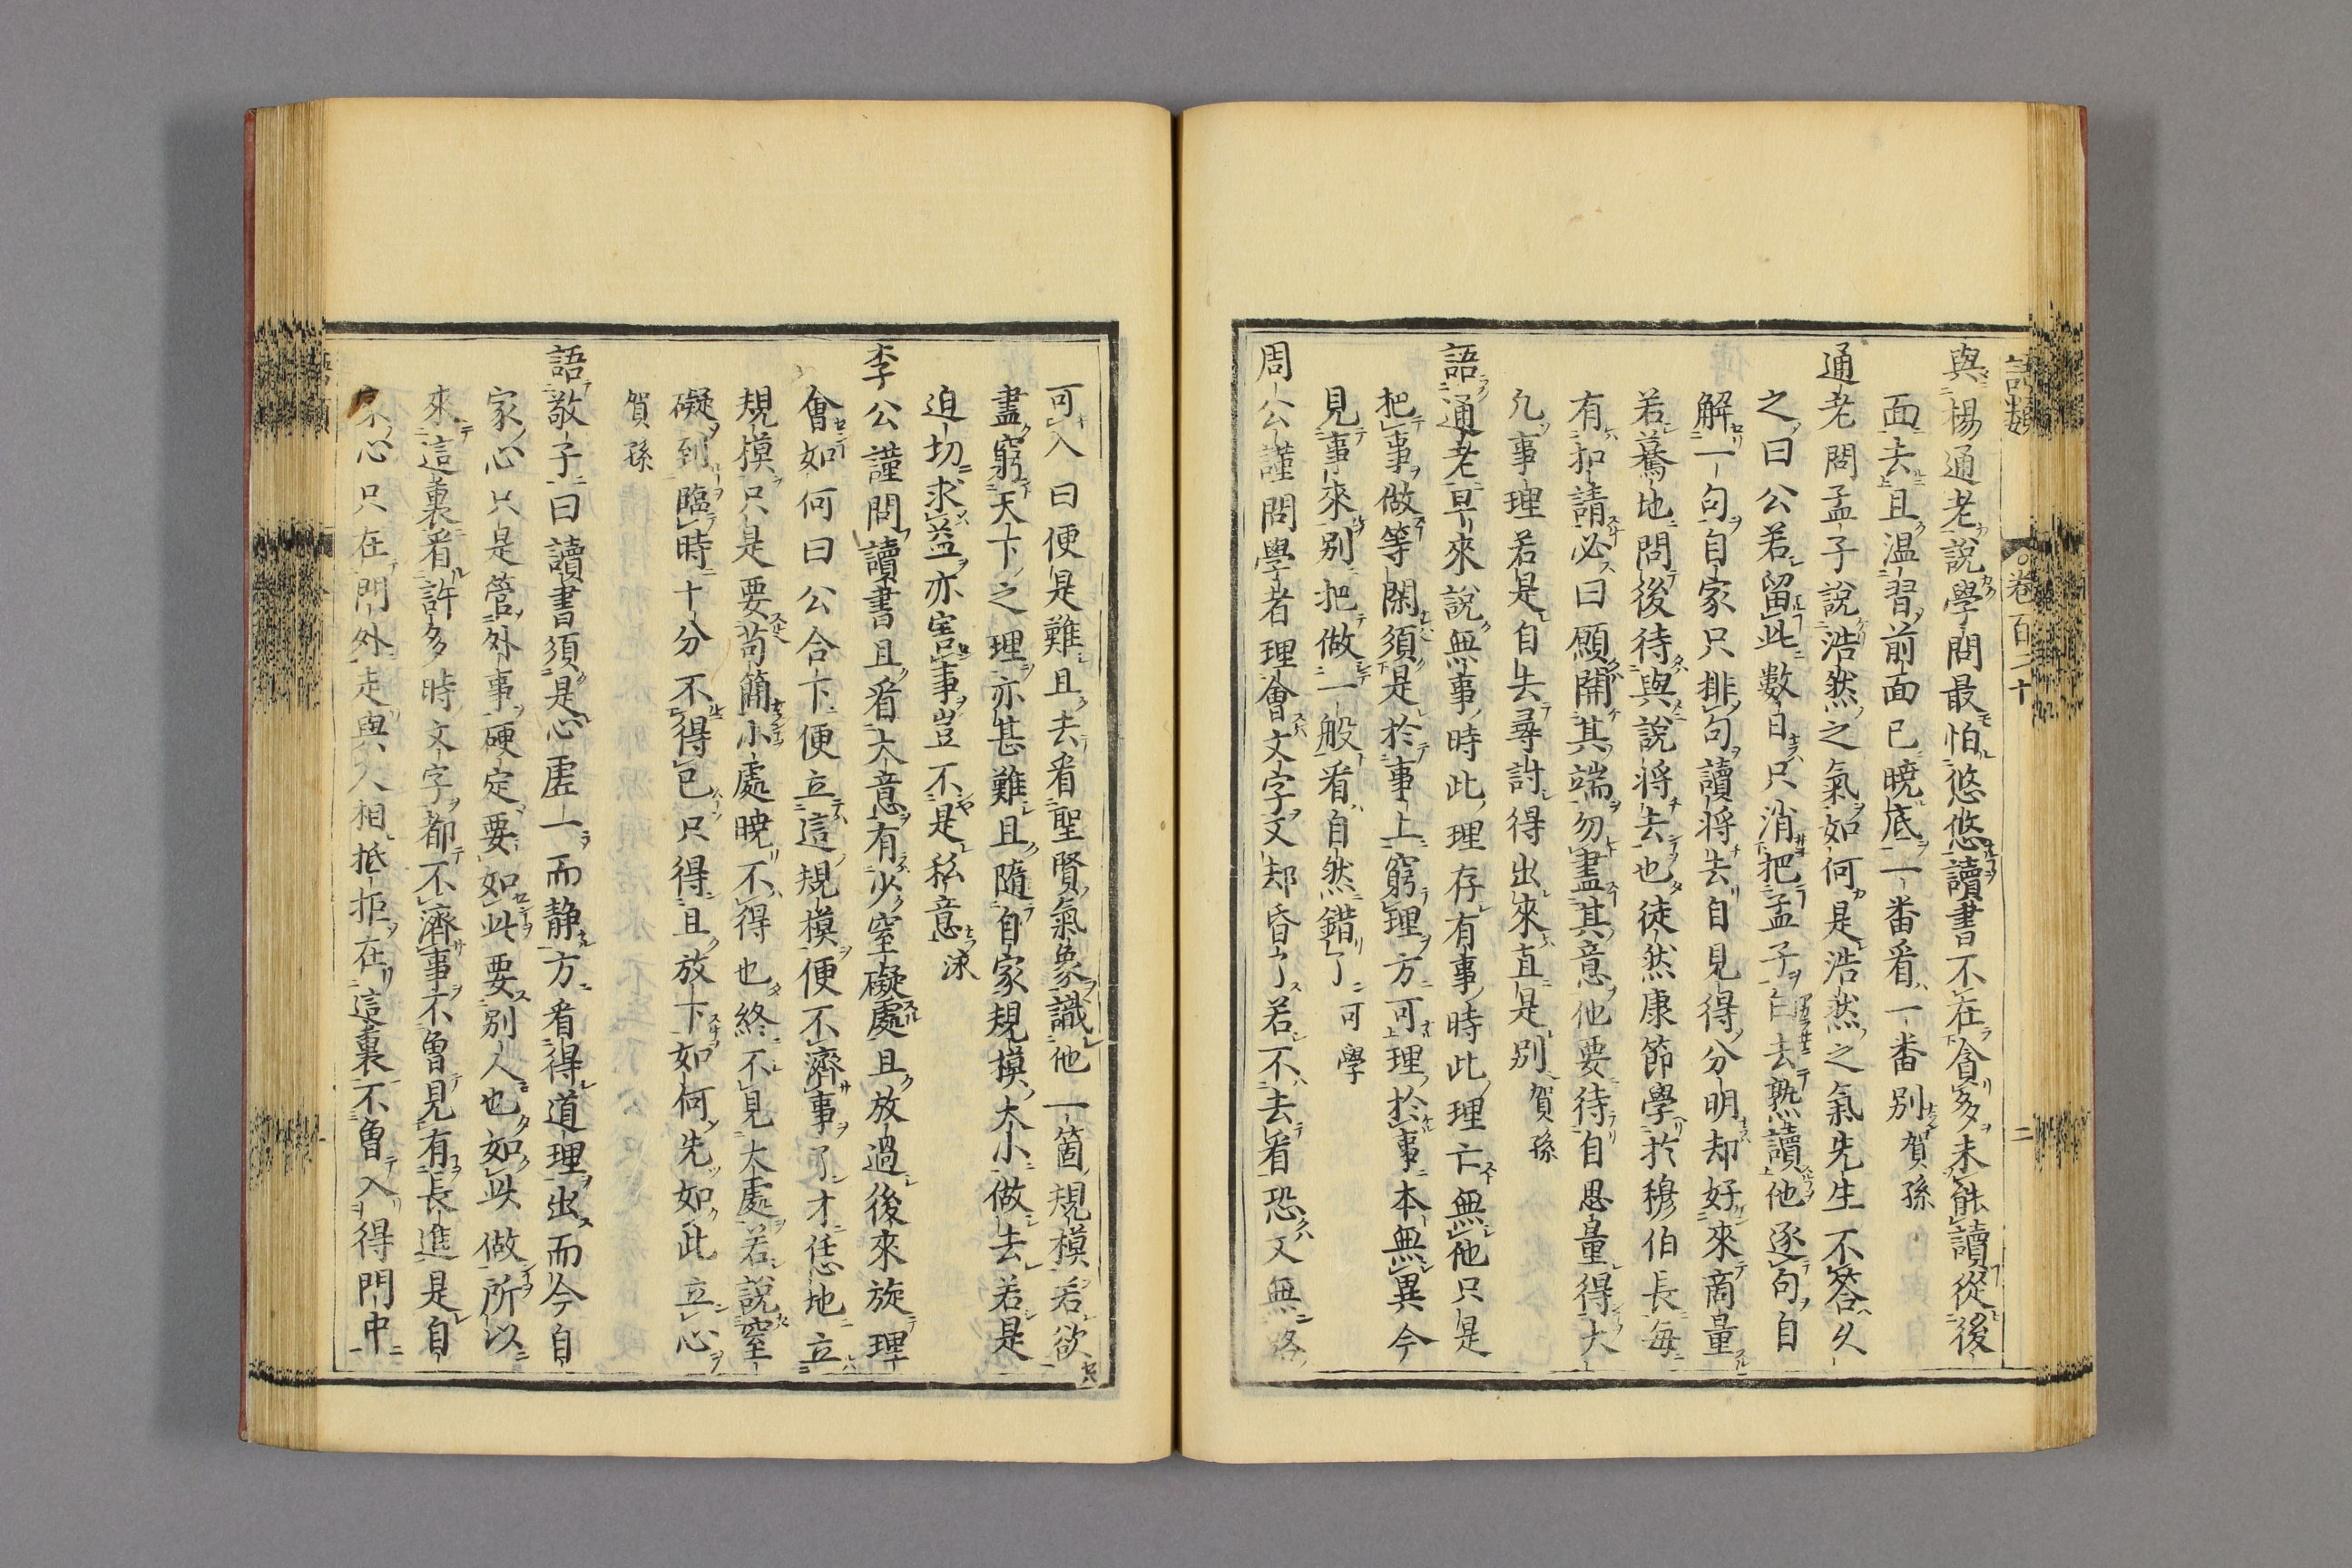 語類 卷百二十 二
與楊通老說學問最怕悠悠讀書不在貪多未能讀從後
面去且温習前面已曉底一番看一番別賀孫
通老問孟子說浩然之氣如何是浩然之氣先生不答久
之曰公若留此數日只消把孟子白去熟讀他逐句自
解一句自家只排句讀將去自見得分明却好來商量
若驀地問後待與說將去也徒然康節學於穆伯長每
有扣請必曰願開其端勿盡其意他要待自思量得大
凡事理若是自去尋討得出來直是別賀孫
語通老早來說無事時此理存有事時此理亡無他只是
把事做等閑須是於事上窮理方可理於事本無異今
見事來別把做一般看自然錯了可學
周公謹問學者理會文字又却昏了若不去看恐又無路
可入曰便是難且去看聖賢氣象識他一箇規模若欲
盡窮天下之理亦甚難且隨自家規模大小做去若是
迫切求益亦害事豈不是私意泳
李公謹問讀書且看大意有少窒礙處且放過後來旋理
會如何曰公合下便立這規模便不濟事了才恁地立
規模只是要苟簡小處曉不得也終不見大處若說窒
礙到臨時十分不得已只得且放下如何先如此立心
賀孫
語敬子曰讀書須是心虛一而靜方看得道理出而今自
家心只是管外事硬定要如此要別人也如此做所以
來這裏看許多時文字都不濟事不曾見有長進是自
家心只在門外走與人相抵拒在這裏不曾入得門中